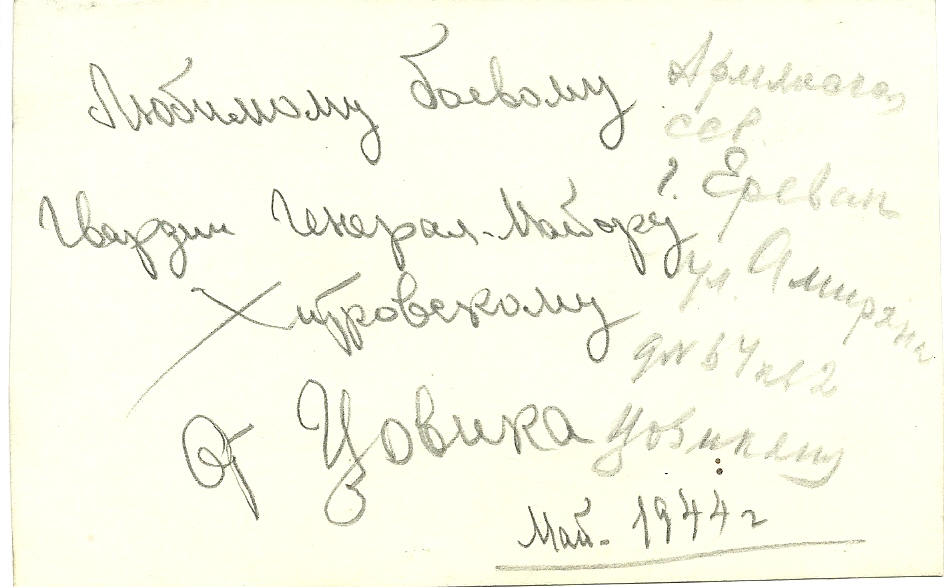 Любимому боевому
Гвардии Генерал-Майору
Хитровскому
От Цовика
Май - 1944 г
Армянская
сср
г. Ереван
ул. Амиряна
Цовикяну